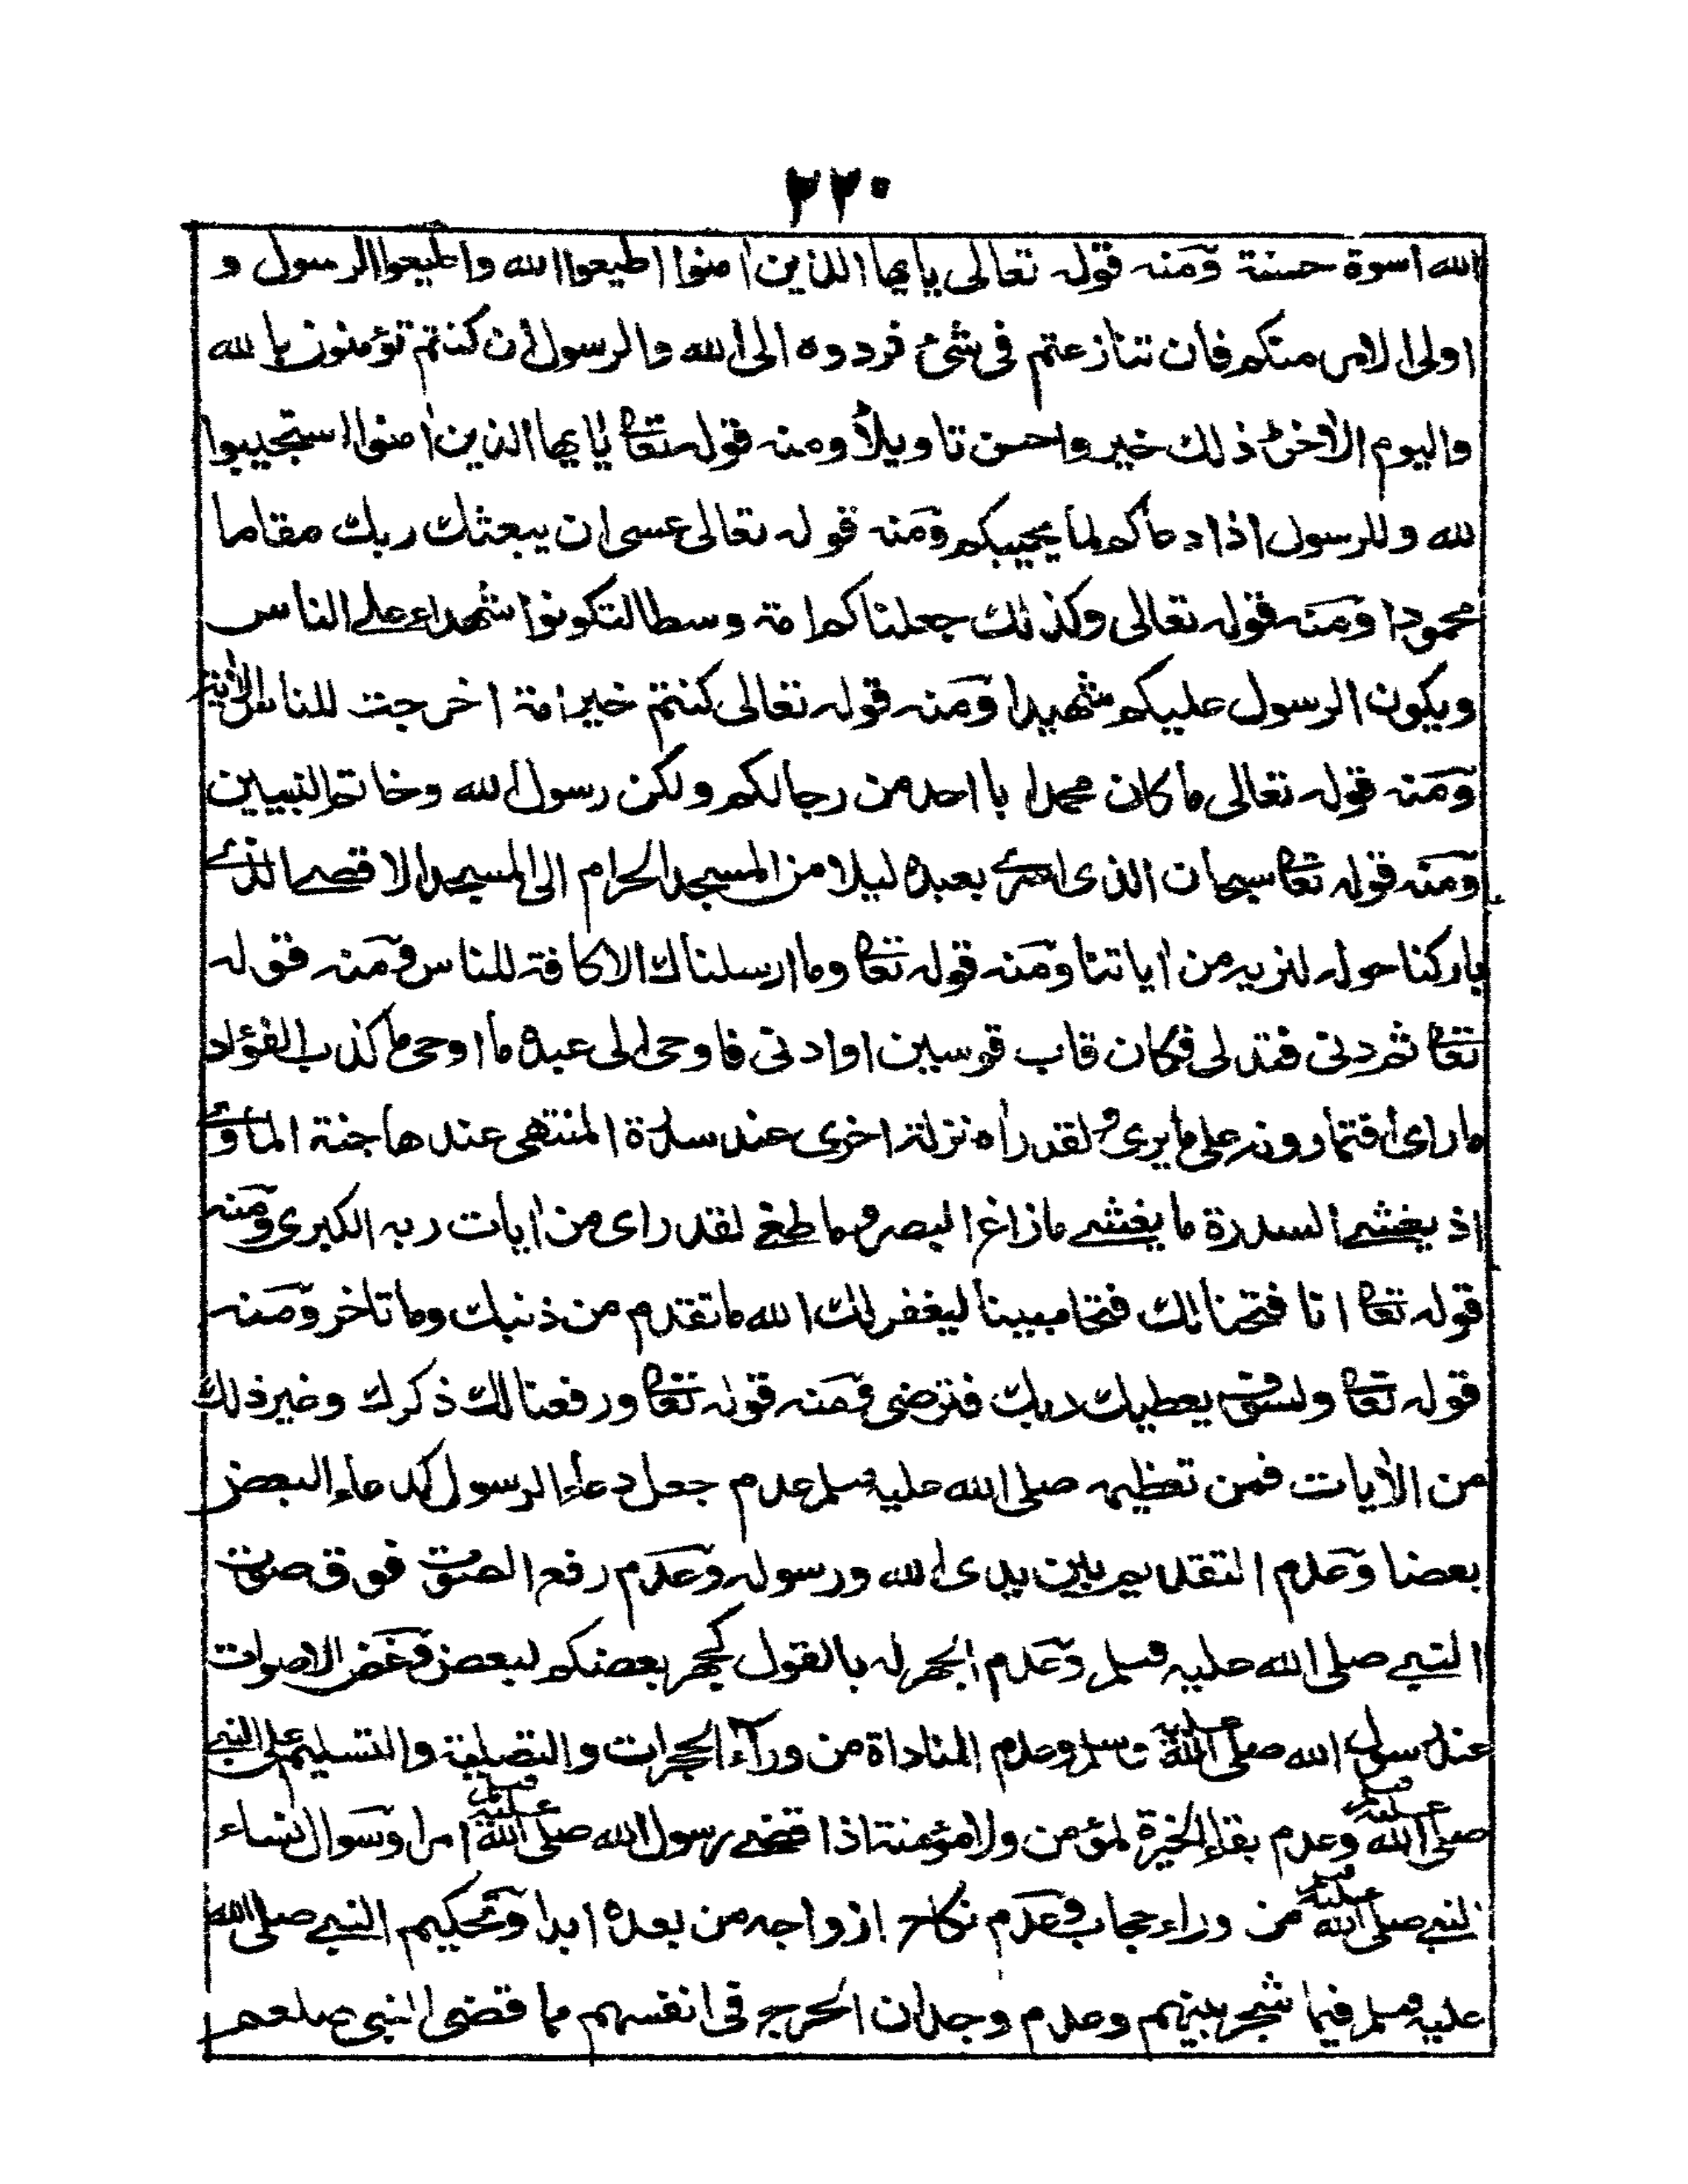 ٢٢٠
الله اسوة حسنة ومنه قوله تعالى يايها الذين اٰمنوا اطيعوا الله واطيعوا الرسول و
اولى الامر منكم فان تنازعتم فى شئ فردوه الى الله والرسول ان كنتم تؤمنون بالله
واليوم الاٰخر ذلك خير واحسن تاويلاً ومنه قوله تعا يٰايها الذين اٰمنوا استجيبوا
لله وللرسول اذا دعاكم لما يحييكم ومنه قوله تعالى عسى ان يبعثك ربك مقاما
محمودا ومنه قوله تعالى وكذلك جعلناكم امة وسطا لتكونوا شهداء على الناس
ويكون الرسول عليكم شهيدا ومنه قوله تعالى كنتم خير امة اخرجت للناس الاٰية
ومنه قوله تعالى ما كان محمد ابا احد من رجالكم ولكن رسول الله وخاتم النبيين
ومنه قوله تعا سبحان الذى اسرى بعبده ليلا من المسجد الحرام الى المسجد الاقصا الذى
باركنا حوله لنريه من اٰياتنا ومنه قوله تعا وما ارسلناك الا كافة للناس ومنه قوله
تعا ثم دنى فتدلى فكان قاب قوسين او ادنى فاوحى الى عبده ما اوحى ما كذب الفؤاد
ما راى افتمارونه على ما يرى ولقد رأه نزلة اخرى عند سدرة المنتهى عندها جنة المأوى
اذ يغشى السدرة ما يغشى ما زاغ البصر وما طغى لقد راى من اٰيات ربه الكبرى ومنه
قوله تعا انا فتحنا لك فتحا مبينا ليغفر لك الله ما تقدم من ذنبك وما تاخر ومنه
قوله تعا ولسوف يعطيك ربك فترضى ومنه قوله تعا ورفعنا لك ذكرك وغير ذلك
من الاٰيات فمن تعظيمه صلى الله عليه وسلم عدم جعل دعاء الرسول كدعاء البعض
بعضا وعدم التقديم بين يدى الله ورسوله وعدم رفع الصوت فوق صوت
النبي صلى الله عليه وسلم وعدم الجهر له بالقول كجهر بعضكم لبعض وغض الاصوات
عند رسول الله صلى الله عليه وسلم وعدم المناداة من ورآء الحجرات والتصلية والتسليم على النبي
صلى الله عليه وسلم وعدم بقاء الخيرة لمؤمن ولا مؤمنة اذا قضى رسول الله صلى الله عليه وسلم امرا وسوال نساء
النبي صلى الله عليه وسلم من وراء حجاب وعدم نكاح ازواجه من بعده ابدا وتحكيم النبي صلى الله
عليه وسلم فيما شجر بينهم وعدم وجدان الحرج فى انفسهم مما قضى النبى صلعم